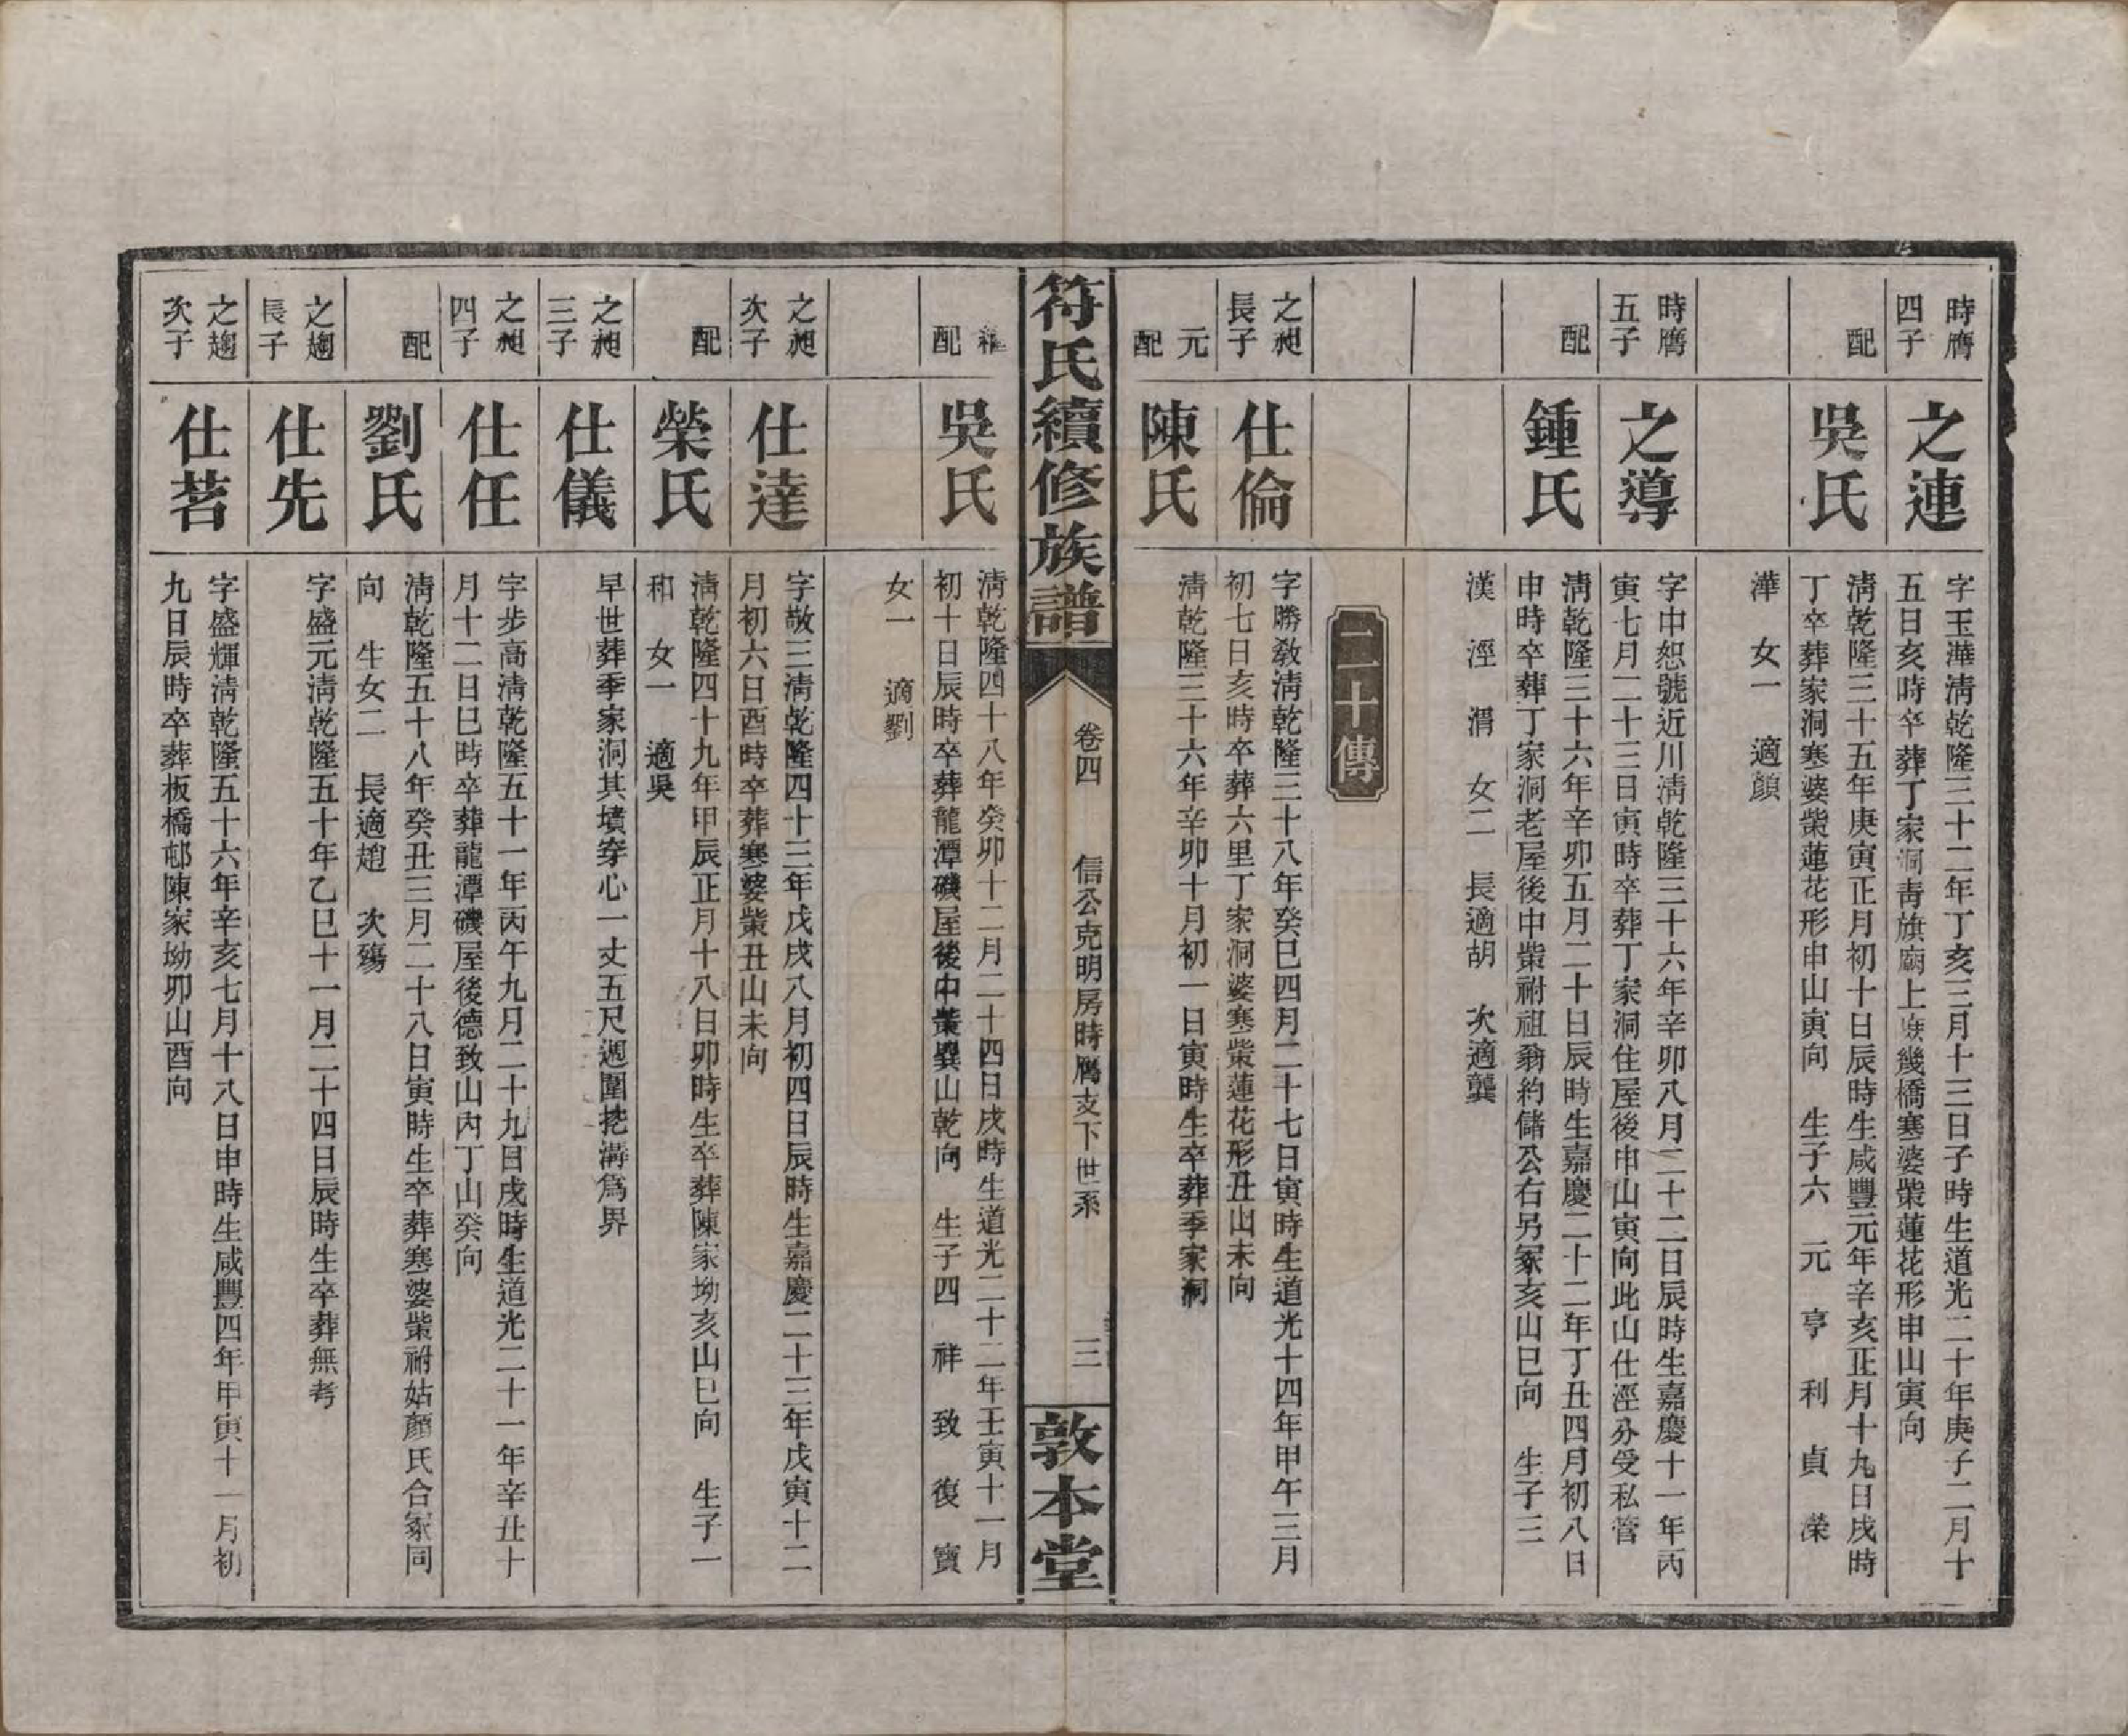 時膺
四子
之連
字玉澕淸乾隆三十二年丁亥三月十三日子時生道光二十年庚子二月十
五日亥時卒葬丁家洞靑旗廟上 幾橋寒婆柴蓮花形申山寅向
配
吳氏
淸乾隆三十五年庚寅正月初十日辰時生咸豐元年辛亥正月十九日戌時
丁卒葬家洞寒婆柴蓮花形申山寅向 生子六 元 亨 利 貞 濚
澕 女一 適顏
時膺
五子
之導
字中恕號近川淸乾隆三十六年辛卯八月二十二日辰時生嘉慶十一年丙
寅七月二十三日寅時卒葬丁家洞住屋後申山寅向此山仕涇分受私管
配
鍾氏
淸乾隆三十六年辛卯五月二十日辰時生嘉慶二十二年丁丑四月初八日
申時卒葬丁家洞老屋後中柴祔祖翁約儲公右另冢亥山巳向 生子三
漢 涇 渭 女二 長適胡 次適龔
二十傳
之昶
長子
仕倫
字勝敎淸乾隆三十八年癸巳四月二十七日寅時生道光十四年甲午三月
初七日亥時卒葬六里丁家洞婆寒柴蓮花形丑山未向
元
配
陳氏
淸乾隆三十六年辛卯十月初一日寅時生卒葬季家洞
符氏續修族譜
卷四
信公克明房時膺支下世系
三
敦本堂
繼
配
吳氏
淸乾隆四十八年癸卯十二月二十四日戌時生道光二十二年壬寅十一月
初十日辰時卒葬龍潭磯屋後中柴巽山乾向 生子四 祥 致 復 寶
女一 適劉
之昶
次子
仕達
字敬三淸乾隆四十三年戊戌八月初四日辰時生嘉慶二十三年戊寅十二
月初六日酉時卒葬寒婆柴丑山未向
配
榮氏
淸乾隆四十九年甲辰正月十八日卯時生卒葬陳家坳亥山巳向 生子一
和 女一 適吳
之昶
三子
仕儀
早世葬季家洞其墳穿心一丈五尺週圍挖溝爲界
之昶
四子
仕任
字步高淸乾隆五十一年丙午九月二十九日戌時生道光二十一年辛丑十
月十二日巳時卒葬龍潭磯屋後德致山內丁山癸向
配
劉氏
淸乾隆五十八年癸丑三月二十八日寅時生卒葬寒婆柴祔姑顏氏合冢同
向 生女二 長適趙 次殤
之趨
長子
仕先
字盛元淸乾隆五十年乙巳十一月二十四日辰時生卒葬無考
之趨
次子
仕茗
字盛輝淸乾隆五十六年辛亥七月十八日申時生咸豐四年甲寅十一月初
九日辰時卒葬板橋邨陳家坳卯山酉向